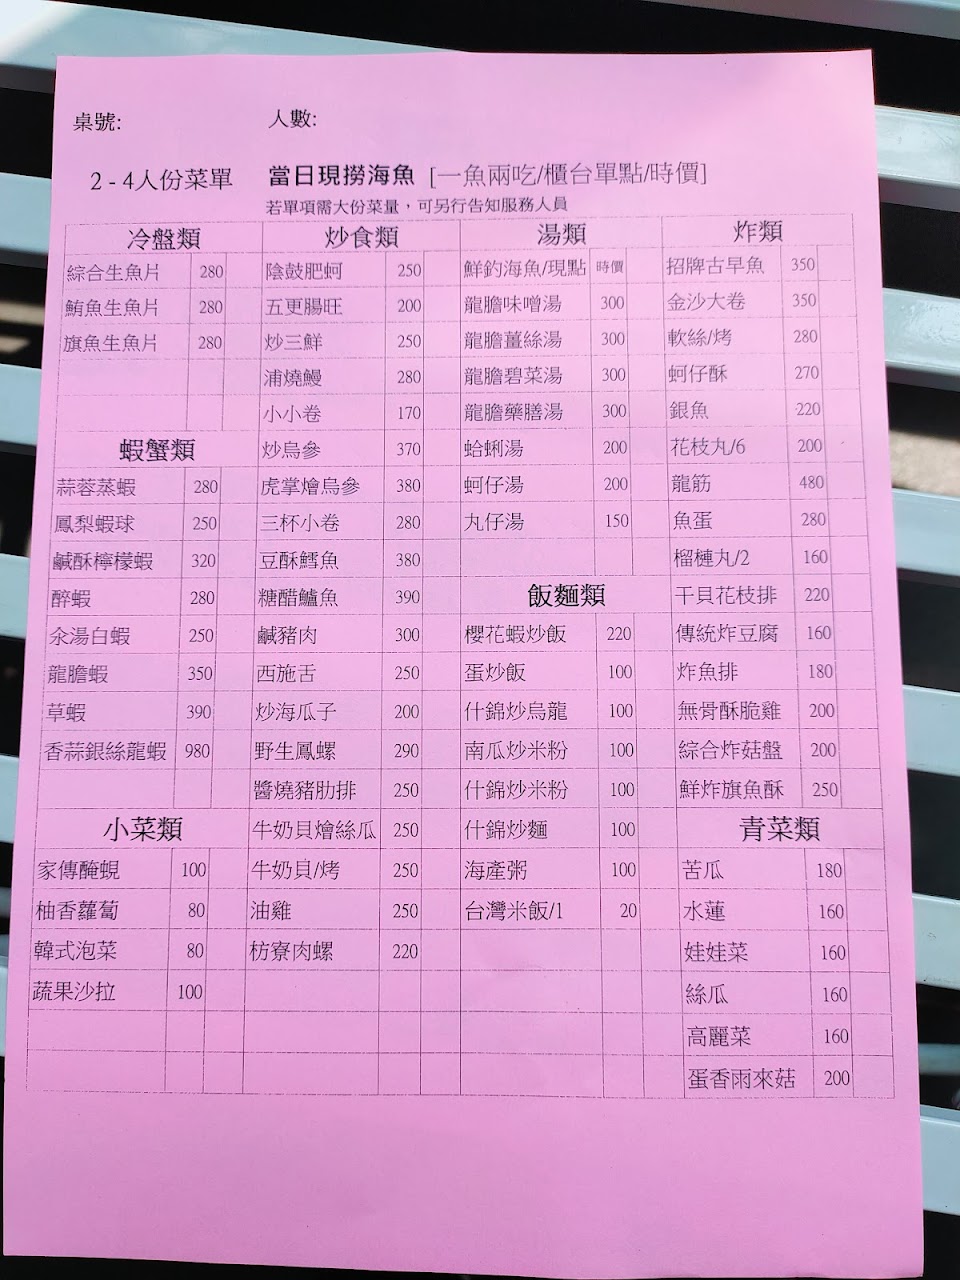 桌號:
人數:
2 - 4人份菜單
當日現撈海魚 [一魚兩吃/櫃台單點/時價]
若單項需大份菜量，可另行告知服務人員
冷盤類
綜合生魚片 280
鮪魚生魚片 280
旗魚生魚片 280
蝦蟹類
蒜蓉蒸蝦 280
鳳梨蝦球 250
鹹酥檸檬蝦 320
醉蝦 280
汆湯白蝦 250
龍膽蝦 350
草蝦 390
香蒜銀絲龍蝦 980
小菜類
家傳醃蜆 100
柚香蘿蔔 80
韓式泡菜 80
蔬果沙拉 100
炒食類
陰鼓肥蚵 250
五更腸旺 200
炒三鮮 250
浦燒鰻 280
小小卷 170
炒烏參 370
虎掌燴烏參 380
三杯小卷 280
豆酥鱈魚 380
糖醋鱸魚 390
鹹豬肉 300
西施舌 250
炒海瓜子 200
野生鳳螺 290
醬燒豬肋排 250
牛奶貝燴絲瓜 250
牛奶貝/烤 250
油雞 250
枋寮肉螺 220
湯類
鮮釣海魚/現點 時價
龍膽味噌湯 300
龍膽薑絲湯 300
龍膽碧菜湯 300
龍膽藥膳湯 300
蛤蜊湯 200
蚵仔湯 200
丸仔湯 150
飯麵類
櫻花蝦炒飯 220
蛋炒飯 100
什錦炒烏龍 100
南瓜炒米粉 100
什錦炒米粉 100
什錦炒麵 100
海產粥 100
台灣米飯/1 20
炸類
招牌古早魚 350
金沙大卷 350
軟絲/烤 280
蚵仔酥 270
銀魚 220
花枝丸/6 200
龍筋 480
魚蛋 280
榴槤丸/2 160
干貝花枝排 220
傳統炸豆腐 160
炸魚排 180
無骨酥脆雞 200
綜合炸菇盤 200
鮮炸旗魚酥 250
青菜類
苦瓜 180
水蓮 160
娃娃菜 160
絲瓜 160
高麗菜 160
蛋香雨來菇 200